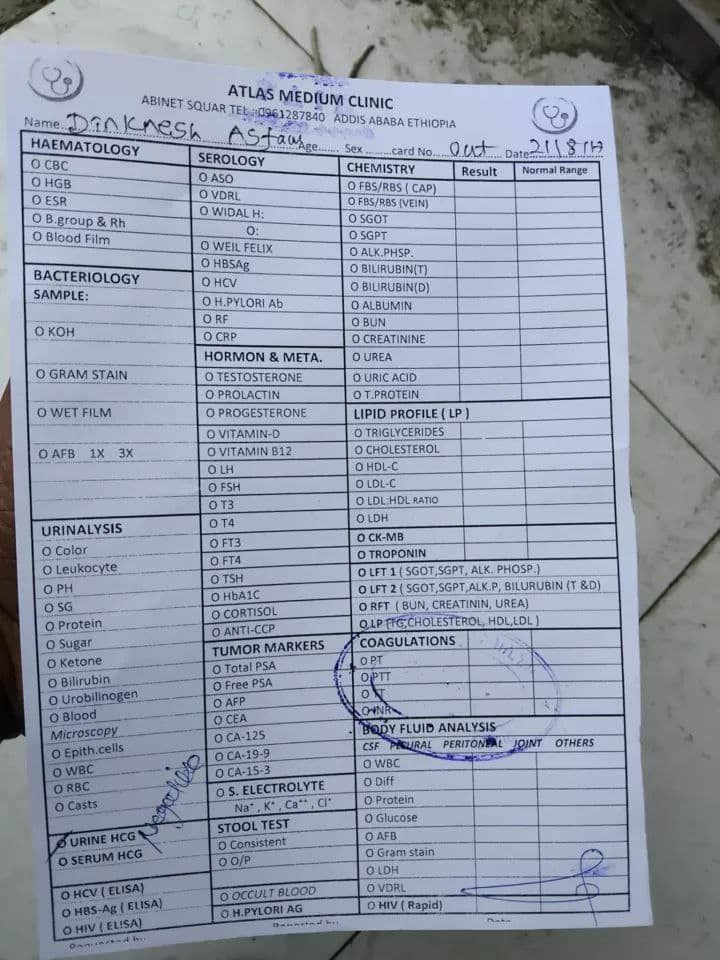 ATLAS MEDIUM CLINIC
ABINET SQUAR TEL.:0961287840 ADDIS ABABA ETHIOPIA
Name. Dinknesh Asfaw Age...... Sex ......card No. Out Date 21/8/17
HAEMATOLOGY
O CBC
O HGB
O ESR
O B.group & Rh
O Blood Film
BACTERIOLOGY
SAMPLE:
O KOH
O GRAM STAIN
O WET FILM
O AFB 1X 3X
URINALYSIS
O Color
O Leukocyte
O PH
O SG
O Protein
O Sugar
O Ketone
O Bilirubin
O Urobilinogen
O Blood
Microscopy
O Epith.cells
O WBC
O RBC
O Casts
O URINE HCG Negative
O SERUM HCG
O HCV ( ELISA)
O HBS-Ag ( ELISA)
O HIV ( ELISA)
SEROLOGY
O ASO
O VDRL
O WIDAL H:
O:
O WEIL FELIX
O HBSAg
O HCV
O H.PYLORI Ab
O RF
O CRP
HORMON & META.
O TESTOSTERONE
O PROLACTIN
O PROGESTERONE
O VITAMIN-D
O VITAMIN B12
O LH
O FSH
O T3
O T4
O FT3
O FT4
O TSH
O HbA1C
O CORTISOL
O ANTI-CCP
TUMOR MARKERS
O Total PSA
O Free PSA
O AFP
O CEA
O CA-125
O CA-19-9
O CA-15-3
O S. ELECTROLYTE
Na⁺ , K⁺ , Ca⁺⁺ , Cl⁺
STOOL TEST
O Consistent
O O/P
O OCCULT BLOOD
O H.PYLORI AG
CHEMISTRY Result Normal Range
O FBS/RBS ( CAP)
O FBS/RBS (VEIN)
O SGOT
O SGPT
O ALK.PHSP.
O BILIRUBIN(T)
O BILIRUBIN(D)
O ALBUMIN
O BUN
O CREATININE
O UREA
O URIC ACID
O T.PROTEIN
LIPID PROFILE ( LP )
O TRIGLYCERIDES
O CHOLESTEROL
O HDL-C
O LDL-C
O LDL:HDL RATIO
O LDH
O CK-MB
O TROPONIN
O LFT 1 ( SGOT,SGPT, ALK. PHOSP.)
O LFT 2 ( SGOT,SGPT,ALK.P, BILURUBIN (T &D)
O RFT ( BUN, CREATININ, UREA)
O LP (TG,CHOLESTEROL, HDL,LDL )
COAGULATIONS
O PT
O PTT
O INR
BODY FLUID ANALYSIS
CSF PLEURAL PERITONEAL JOINT OTHERS
O WBC
O Diff
O Protein
O Glucose
O AFB
O Gram stain
O LDH
O VDRL
O HIV ( Rapid)